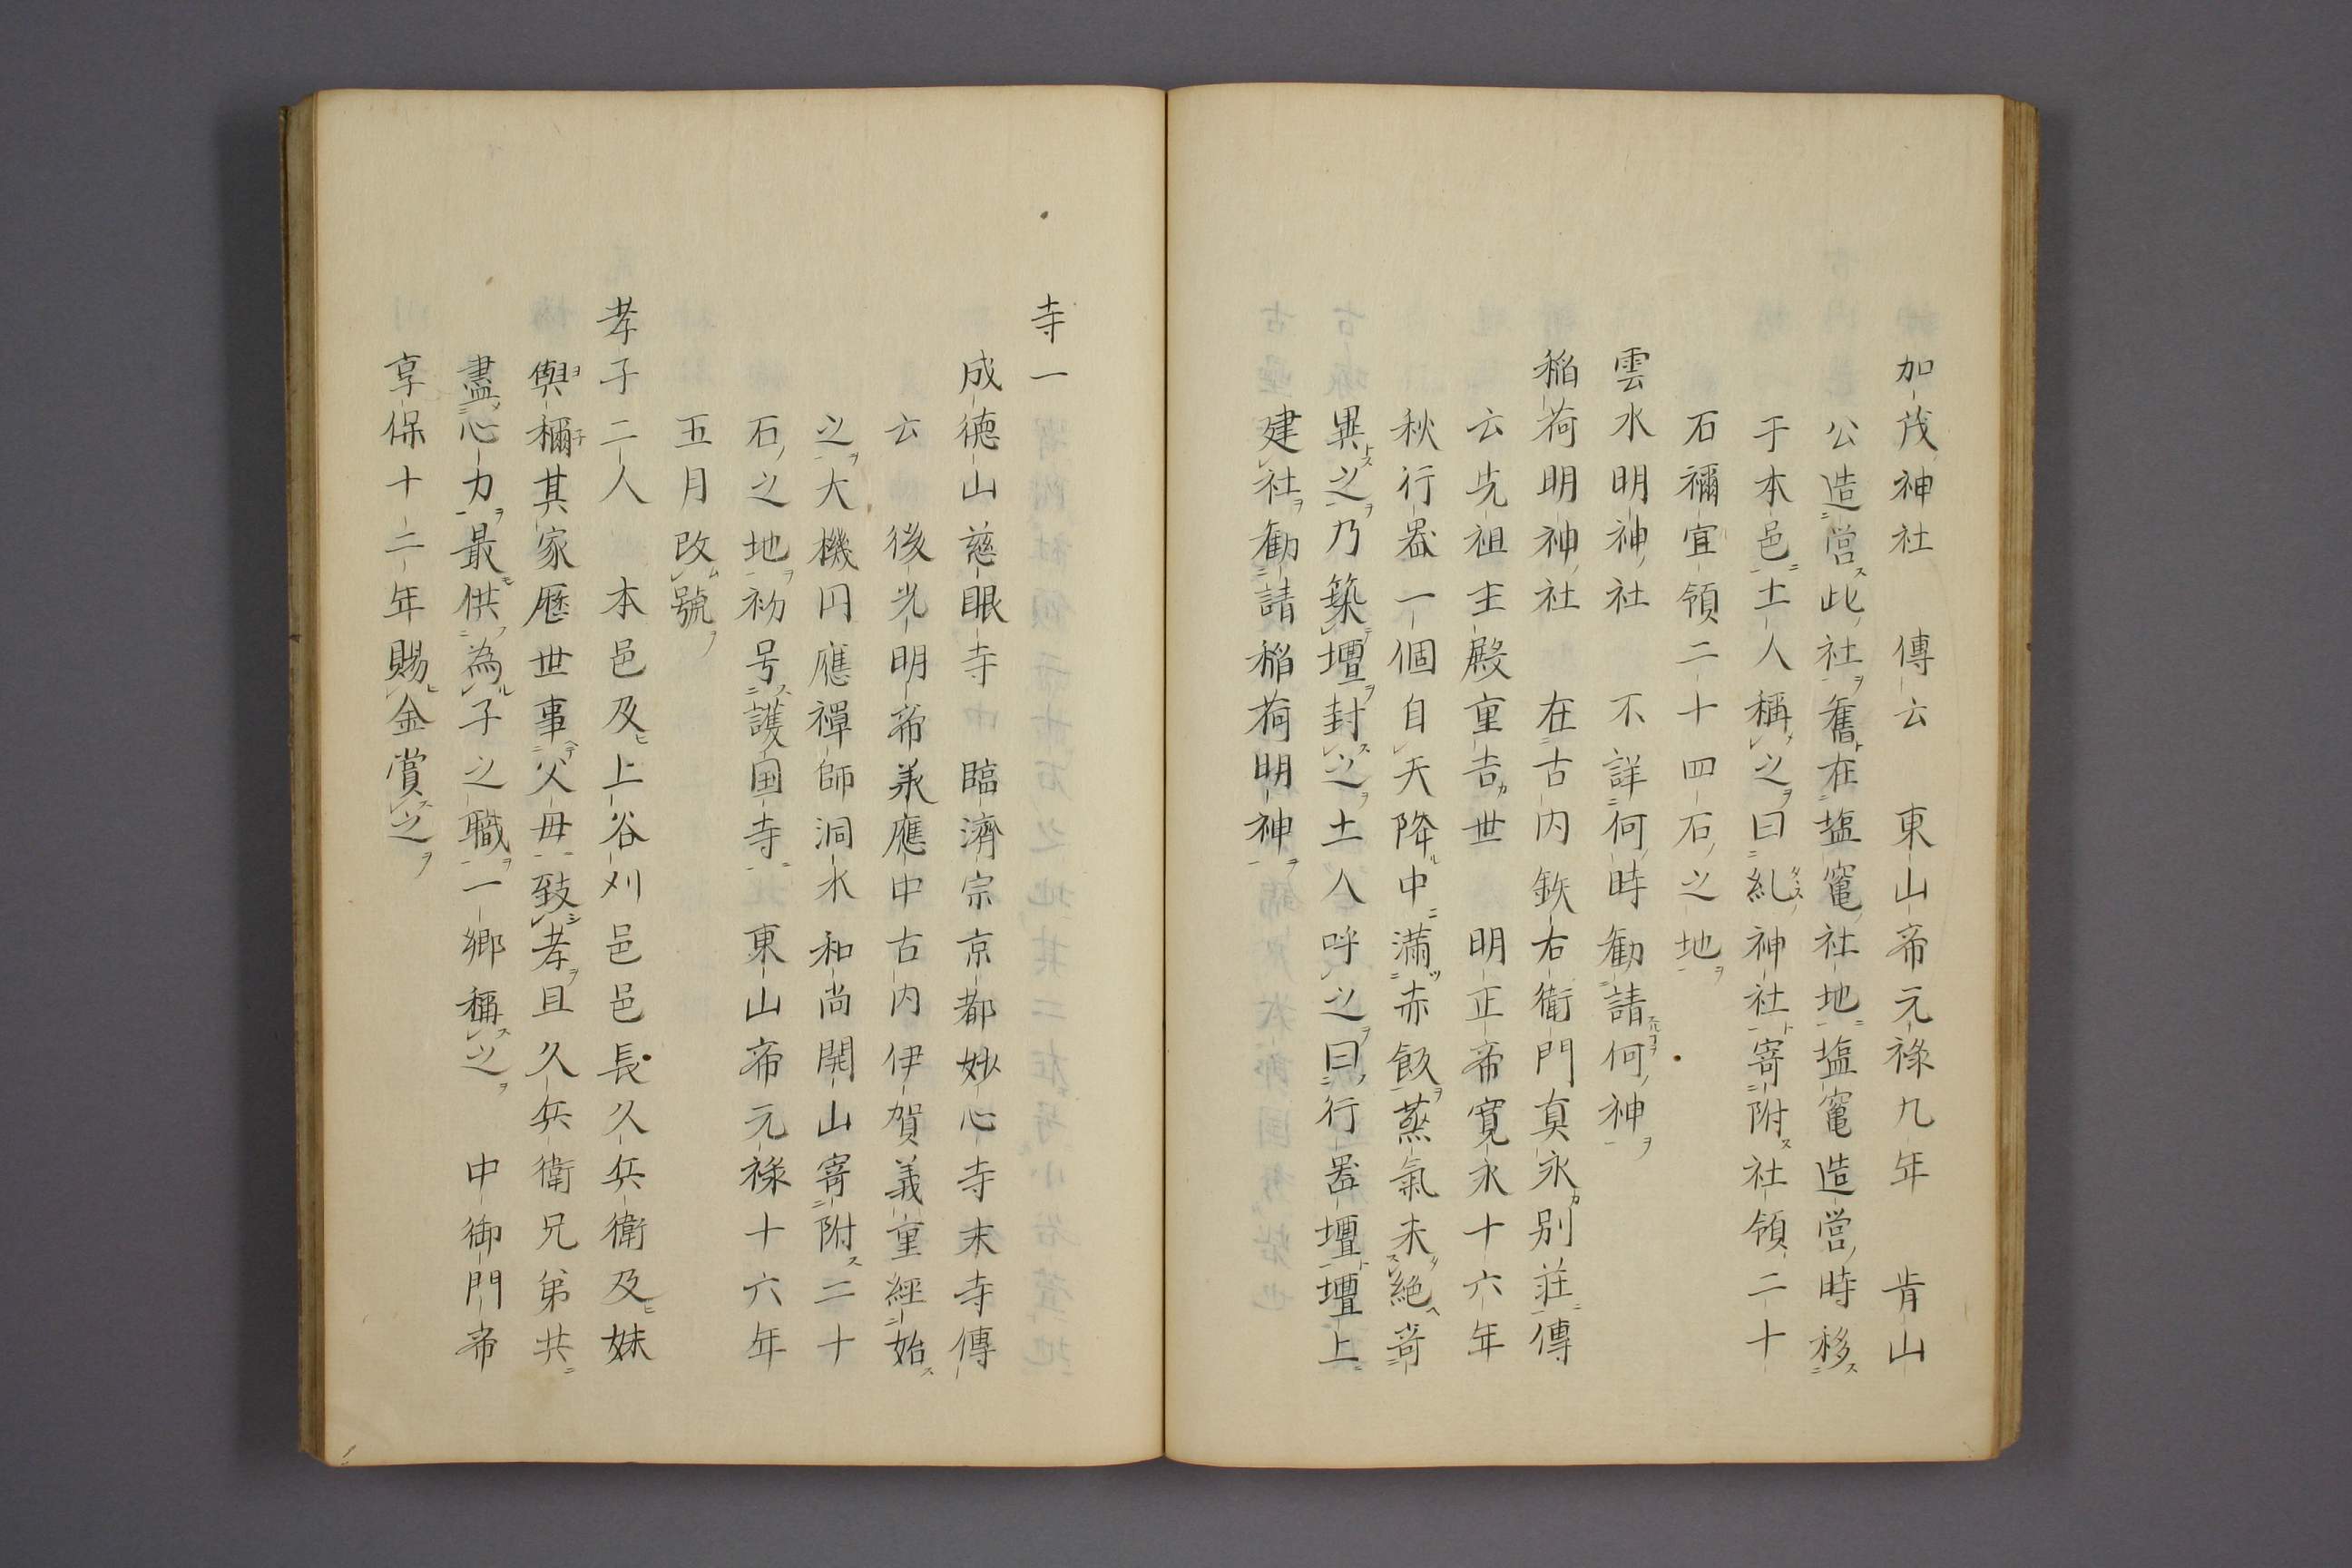 加茂神社　傳云　東山帝元禄九年　肯山
公造営此社舊在塩竃社地塩竃造営時移
于本邑土人稱之曰糺神社寄附社領二十
石禰宜領二十四石之地
雲水明神社　不詳何時勸請何神
稲荷明神社　在古内鉄右衛門真永別荘傳
云先祖主殿重吉世　明正帝寛永十六年
秋行器一個自天降中滿赤飯蒸氣未絶竒
異之乃築壇封之土人呼之曰行器壇壇上
建社勸請稲荷明神
寺一
成徳山慈眼寺　臨濟宗京都妙心寺末寺傳
云　後光明帝承應中古内伊賀義重經始
之大機円應禪師洞水和尚開山寄附二十
石之地初号護国寺　東山帝元禄十六年
五月改號
孝子二人　本邑及上谷刈邑邑長久兵衛及妹
與禰其家歴世事父毋致孝且久兵衛兄弟共
盡心力最供為子之職一郷稱之　中御門帝
享保十二年賜金賞之